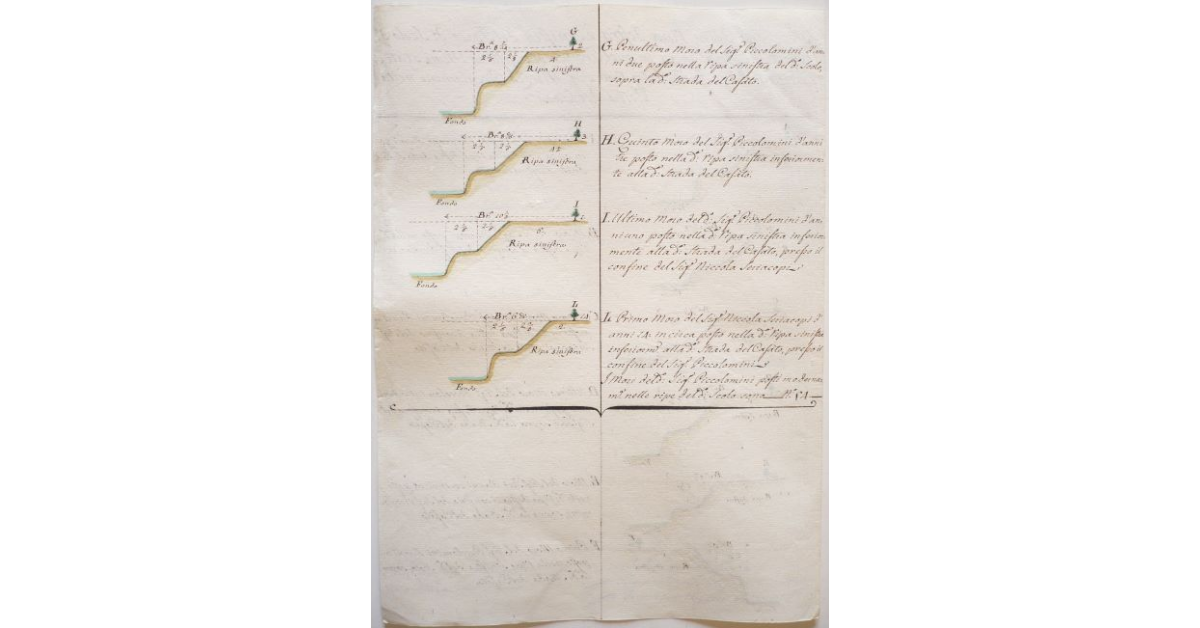 G
Ripa sinistra
Fondo
G. Penultimo Moro del Sig.r Piccolomini d'an-
ni due posto nella Ripa sinistra del d.o Scolo,
sopra la d.a Strada del Casato.
H
Ripa sinistra
Fondo
H. Quinto Moro del Sig.r Piccolomini d'anni
tre posto nella d.a Ripa sinistra inferiormen-
te alla d.a Strada del Casato.
I
Ripa sinistra
Fondo
I. Ultimo Moro del d.o Sig.r Piccolomini d'an-
ni uno posto nella d.a Ripa sinistra inferior-
mente alla d.a Strada del Casato, presso il
confine del Sig.r Niccola Seriacopi
L
Ripa sinistra
Fondo
L. Primo Moro del Sig.r Niccola Seriacopi d'
anni 14. in circa posto nella d.a Ripa sinistra
inferiorm.e alla d.a Strada del Casato, presso il
confine del Sig.r Piccolomini
I Mori del d.o Sig.r Piccolomini posti moderna-
m.e nelle ripe del d.o Scolo sono N.o 54